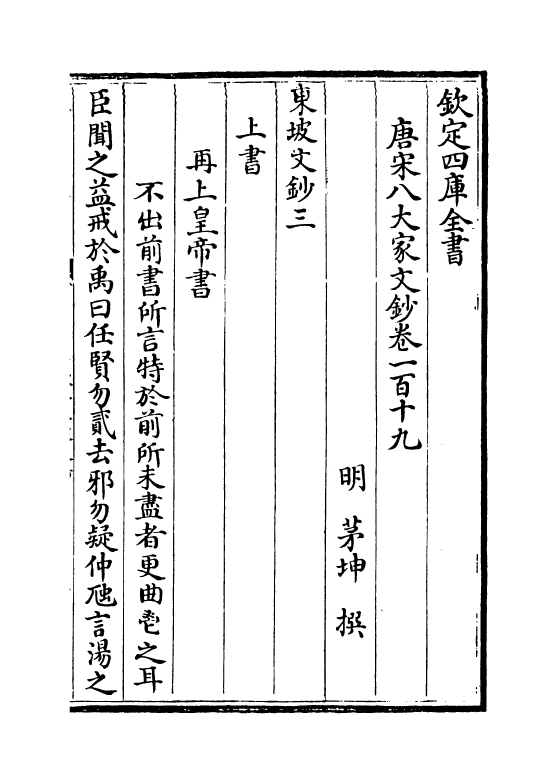 欽定四庫全書
唐宋八大家文鈔卷一百十九
明 茅坤 撰
東坡文鈔三
上書
再上皇帝書
不出前書所言特於前所未盡者更曲鬯之耳
臣聞之益戒於禹曰任賢勿貳去邪勿疑仲虺言湯之